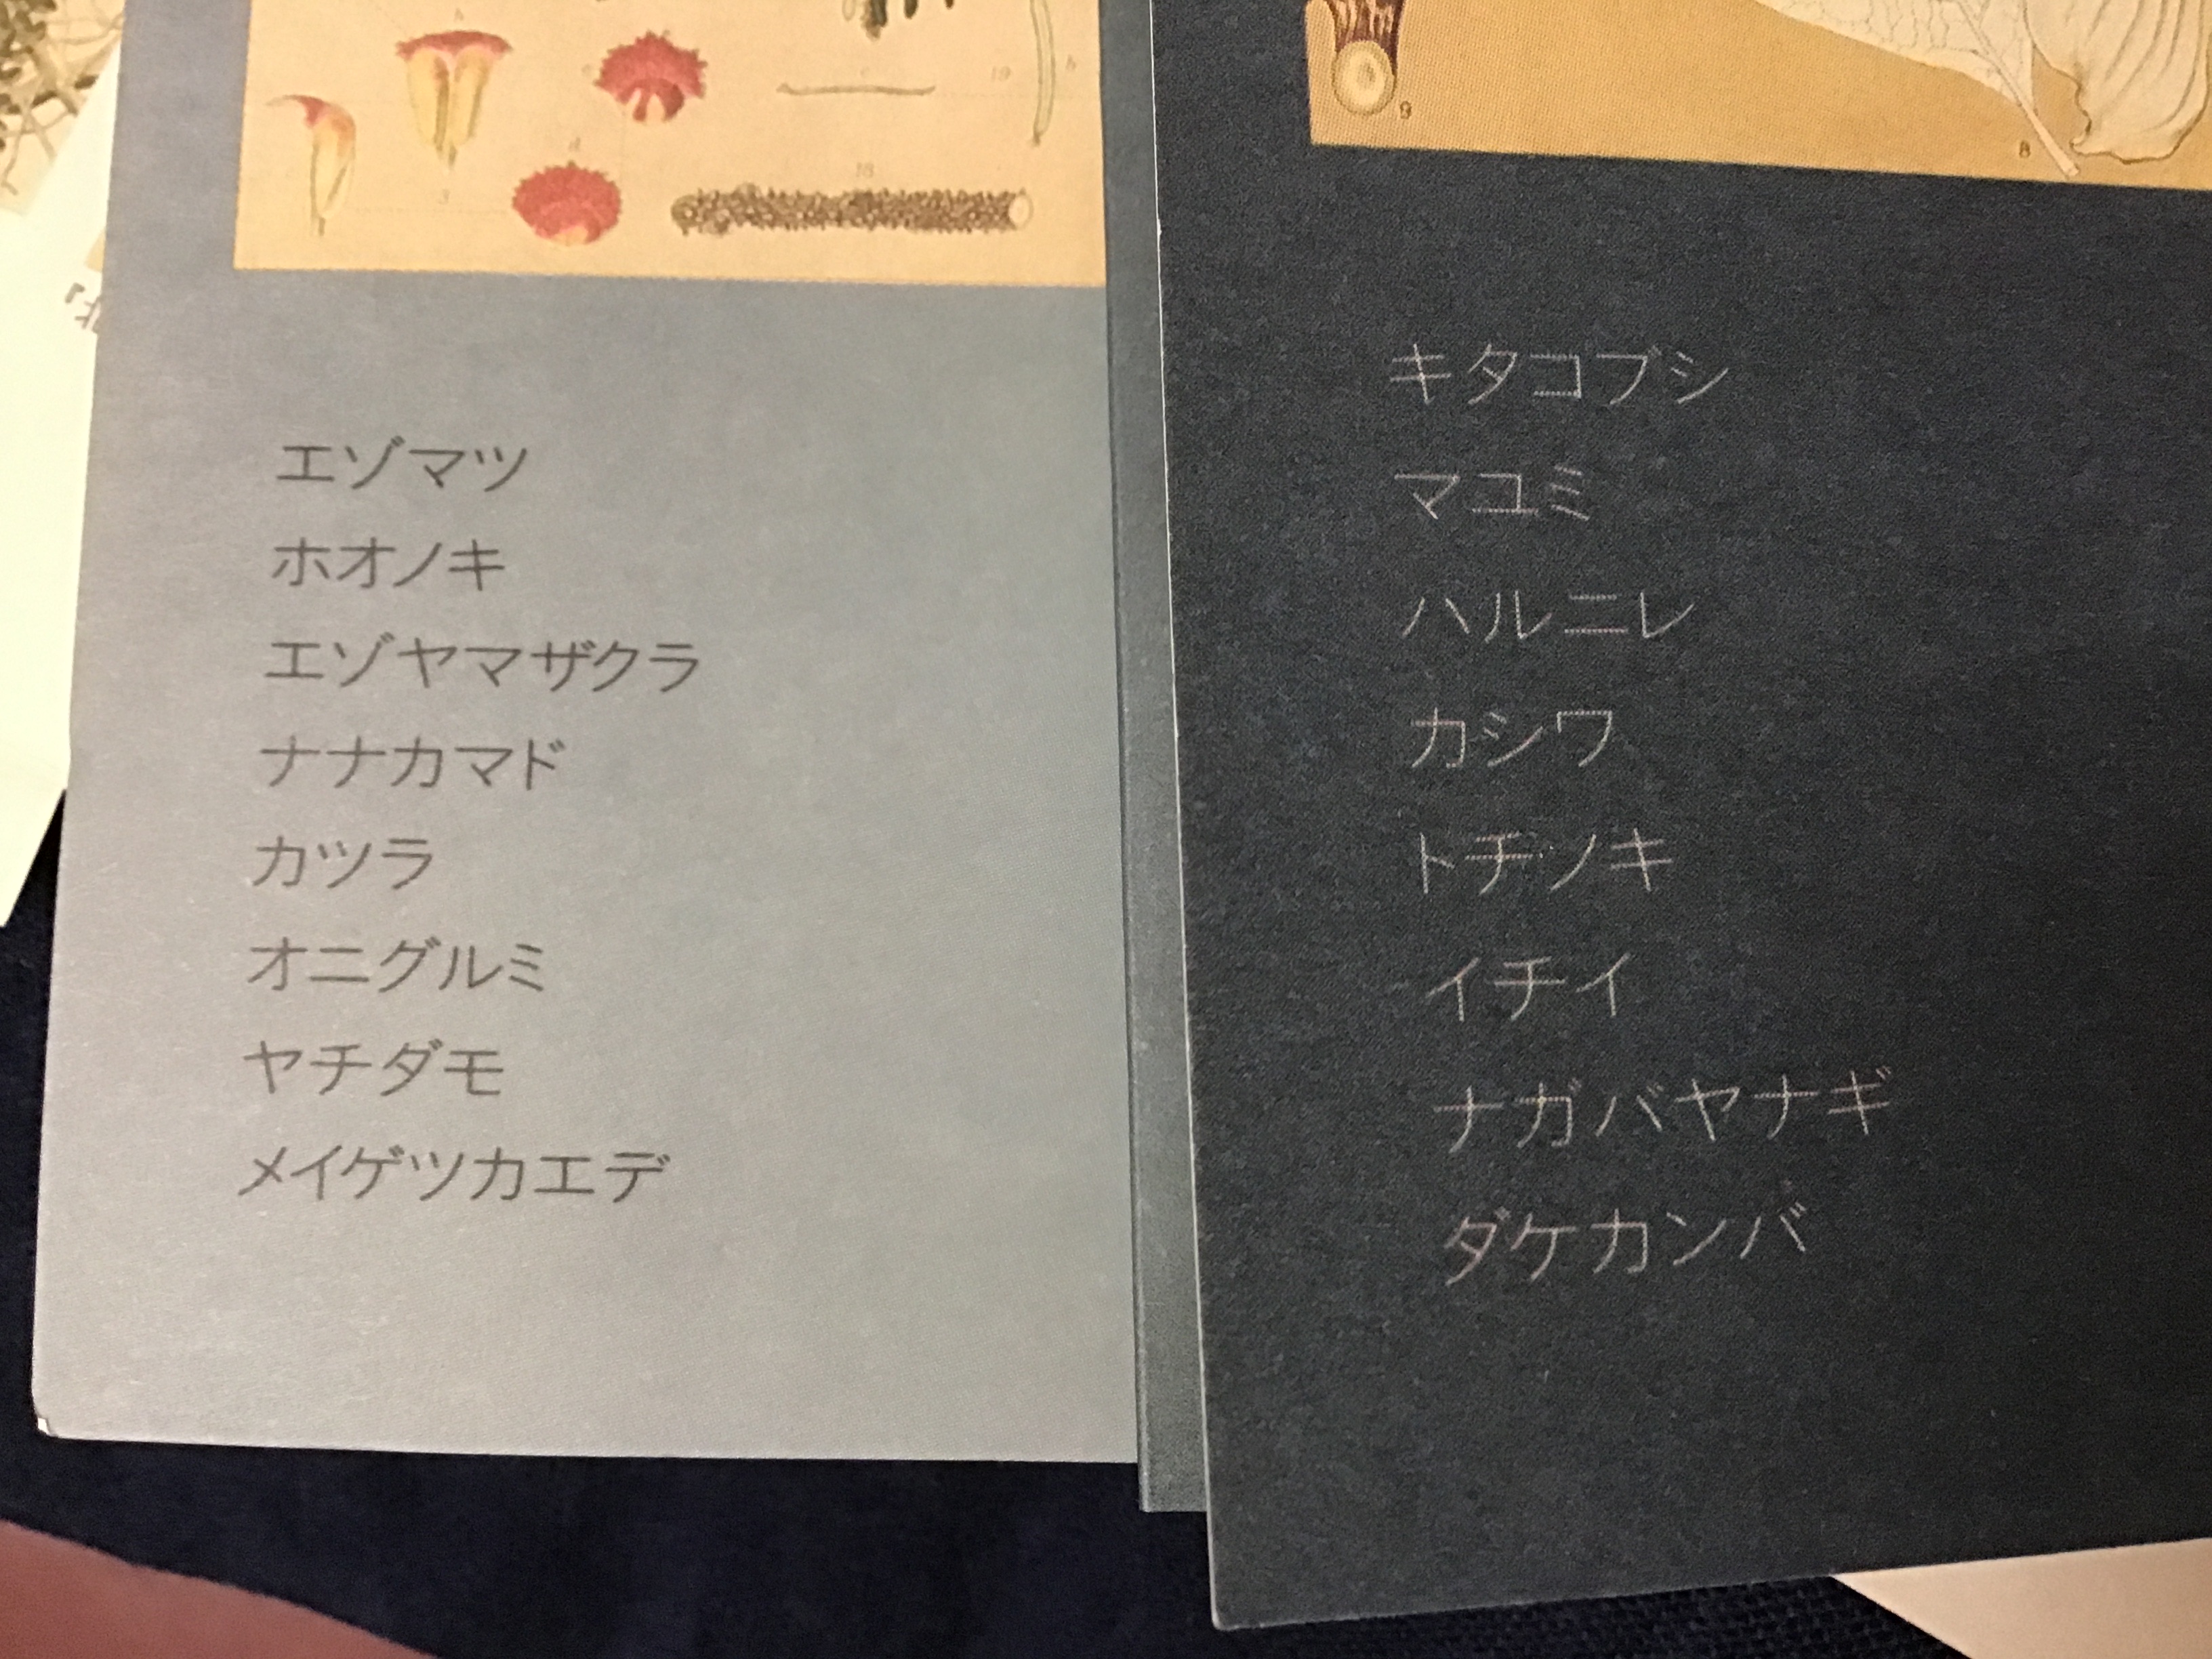 エゾマツ
ホオノキ
エゾヤマザクラ
ナナカマド
カツラ
オニグルミ
ヤチダモ
メイゲツカエデ
キタコブシ
マユミ
ハルニレ
カシワ
トチノキ
イチイ
ナガバヤナギ
ダケカンバ
b
c
d
3
18
c
19
b
9
8